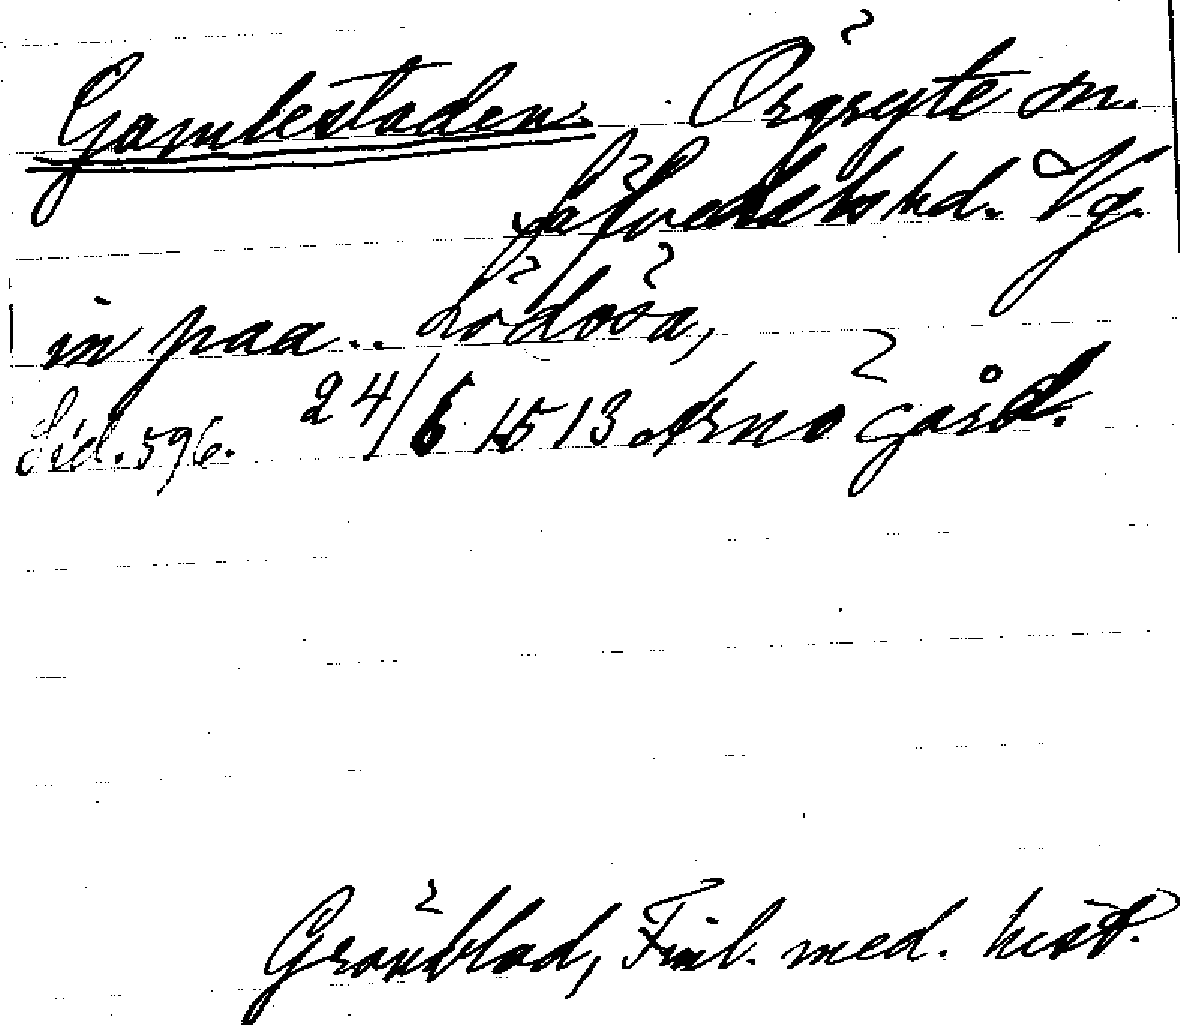 Gamlestaden. Örgryte sn.
Sävedals hd. Vg.
in paa.. Lödösa,
Sid. 596. 24/6 1513 Arnö gård.
Grönblad, Finl. med. hist.